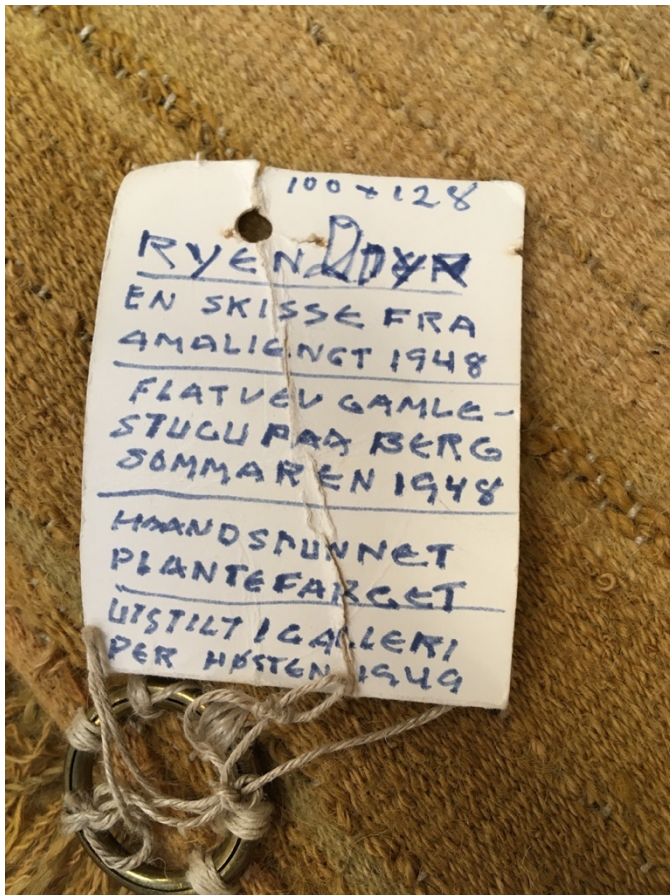 100 + 128
RYEN
EN SKISSE FRA
AMALIENGT 1948
FLATVEV GAMLE-
STUGU PAA BERG
SOMMAREN 1948
HAANDSPUNNET
PLANTEFARGET
UTSTILT I GALLERI
PER HØSTEN 1949